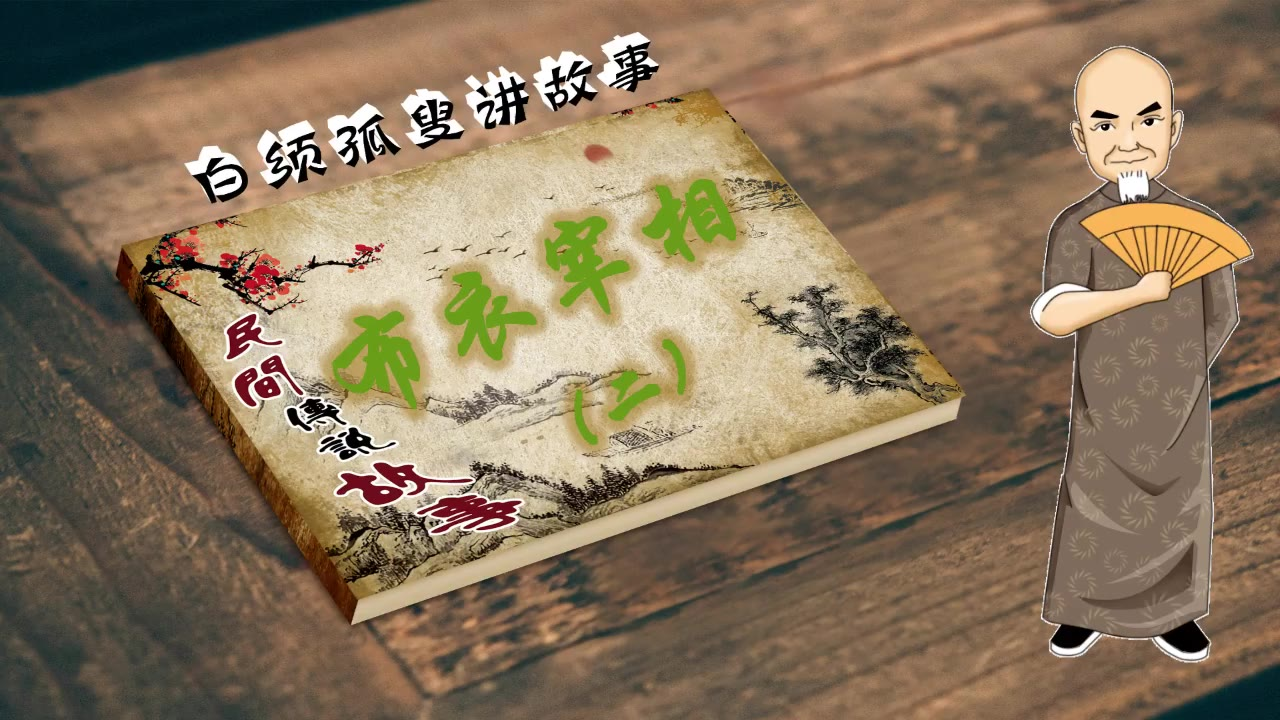 白须孤叟讲故事
布衣宰相
(二)
民間傳說故事